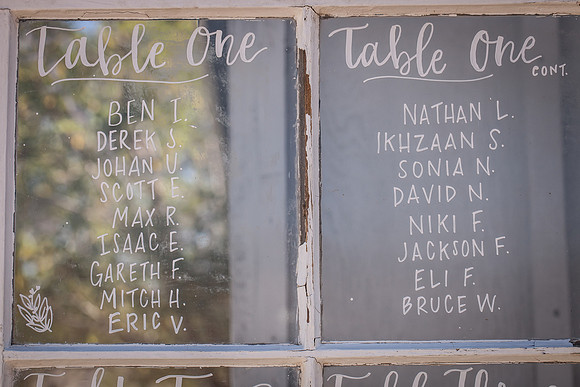 Table One
BEN I.
DEREK S.
JOHAN U.
SCOTT E.
MAX R.
ISAAC E.
GARETH F.
MITCH H.
ERIC V.
Table One
CONT.
NATHAN L.
IKHZAAN S.
SONIA N.
DAVID N.
NIKI F.
JACKSON F.
ELI F.
BRUCE W.
Table
Table